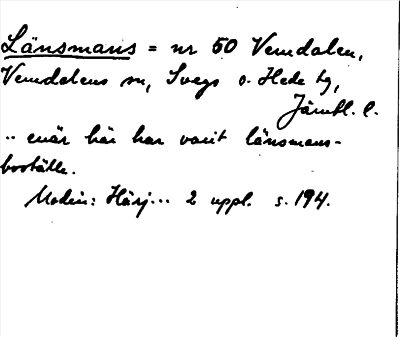 Länsmans = nr 50 Vemdalen,
Vemdalens sn, Svegs o. Hede tg,
Jämtl. l.
.. enär här har varit länsmans-
boställe.
Modin: Härj... 2 uppl. s. 194.